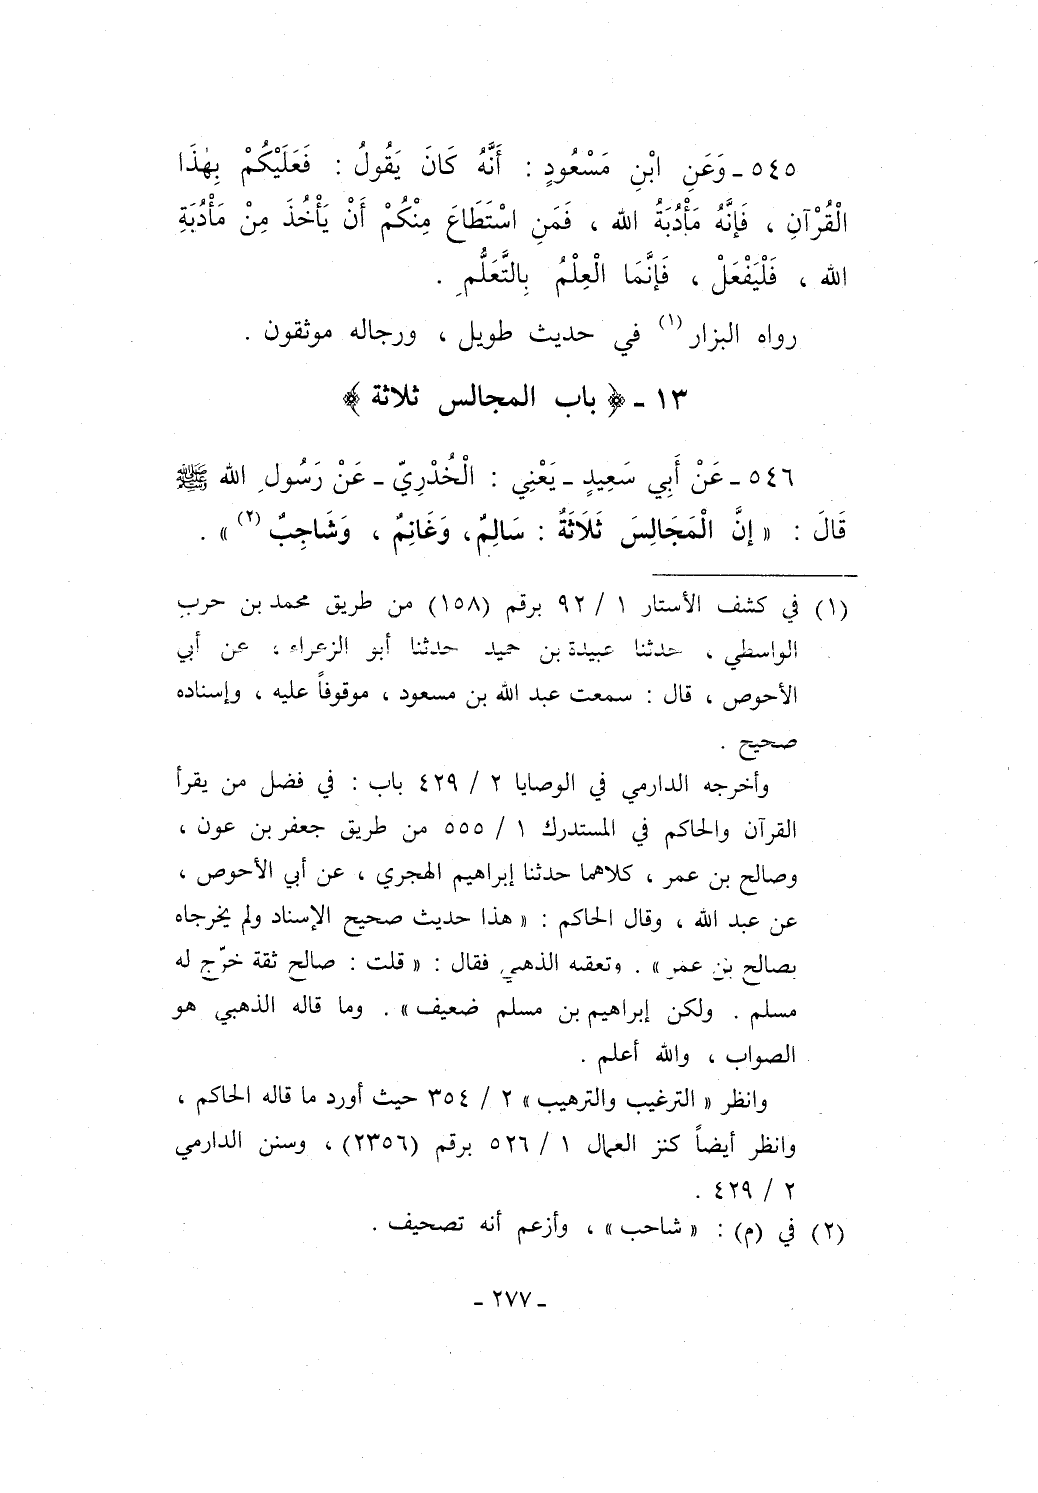 ٥٤٥ ـ وَعَنِ ابْنِ مَسْعُودٍ : أَنَّهُ كَانَ يَقُولُ : فَعَلَيْكُمْ بِهٰذَا
الْقُرْآنِ ، فَإِنَّهُ مَأْدُبَةُ الله ، فَمَنِ اسْتَطَاعَ مِنْكُمْ أَنْ يَأْخُذَ مِنْ مَأْدُبَةِ
الله ، فَلْيَفْعَلْ ، فَإِنَّمَا الْعِلْمُ بِالتَّعَلُّمِ .
رواه البزار (١) في حديث طويل ، ورجاله موثقون .
١٣ ـ ﴿ باب المجالس ثلاثة ﴾
٥٤٦ ـ عَنْ أَبِي سَعِيدٍ ـ يَعْنِي : الْخُدْرِيّ ـ عَنْ رَسُولِ الله ﷺ
قَالَ : « إِنَّ الْمَجَالِسَ ثَلَاثَةٌ : سَالِمٌ، وَغَانِمٌ ، وَشَاجِبٌ (٢) » .
(١) في كشف الأستار ١ / ٩٢ برقم (١٥٨) من طريق محمد بن حرب
الواسطي ، حدثنا عبيدة بن حميد حدثنا أبو الزعراء ، عن أبي
الأحوص ، قال : سمعت عبد الله بن مسعود ، موقوفاً عليه ، وإسناده
صحيح .
وأخرجه الدارمي في الوصايا ٢ / ٤٢٩ باب : في فضل من يقرأ
القرآن والحاكم في المستدرك ١ / ٥٥٥ من طريق جعفر بن عون ،
وصالح بن عمر ، كلاهما حدثنا إبراهيم الهجري ، عن أبي الأحوص ،
عن عبد الله ، وقال الحاكم : « هذا حديث صحيح الإسناد ولم يخرجاه
بصالح بن عمر » . وتعقبه الذهبي فقال : « قلت : صالح ثقة خرّج له
مسلم . ولكن إبراهيم بن مسلم ضعيف » . وما قاله الذهبي هو
الصواب ، والله أعلم .
وانظر « الترغيب والترهيب » ٢ / ٣٥٤ حيث أورد ما قاله الحاكم ،
وانظر أيضاً كنز العمال ١ / ٥٢٦ برقم (٢٣٥٦) ، وسنن الدارمي
٢ / ٤٢٩ .
(٢) في (م) : « شاحب » ، وأزعم أنه تصحيف .
ـ ٢٧٧ ـ